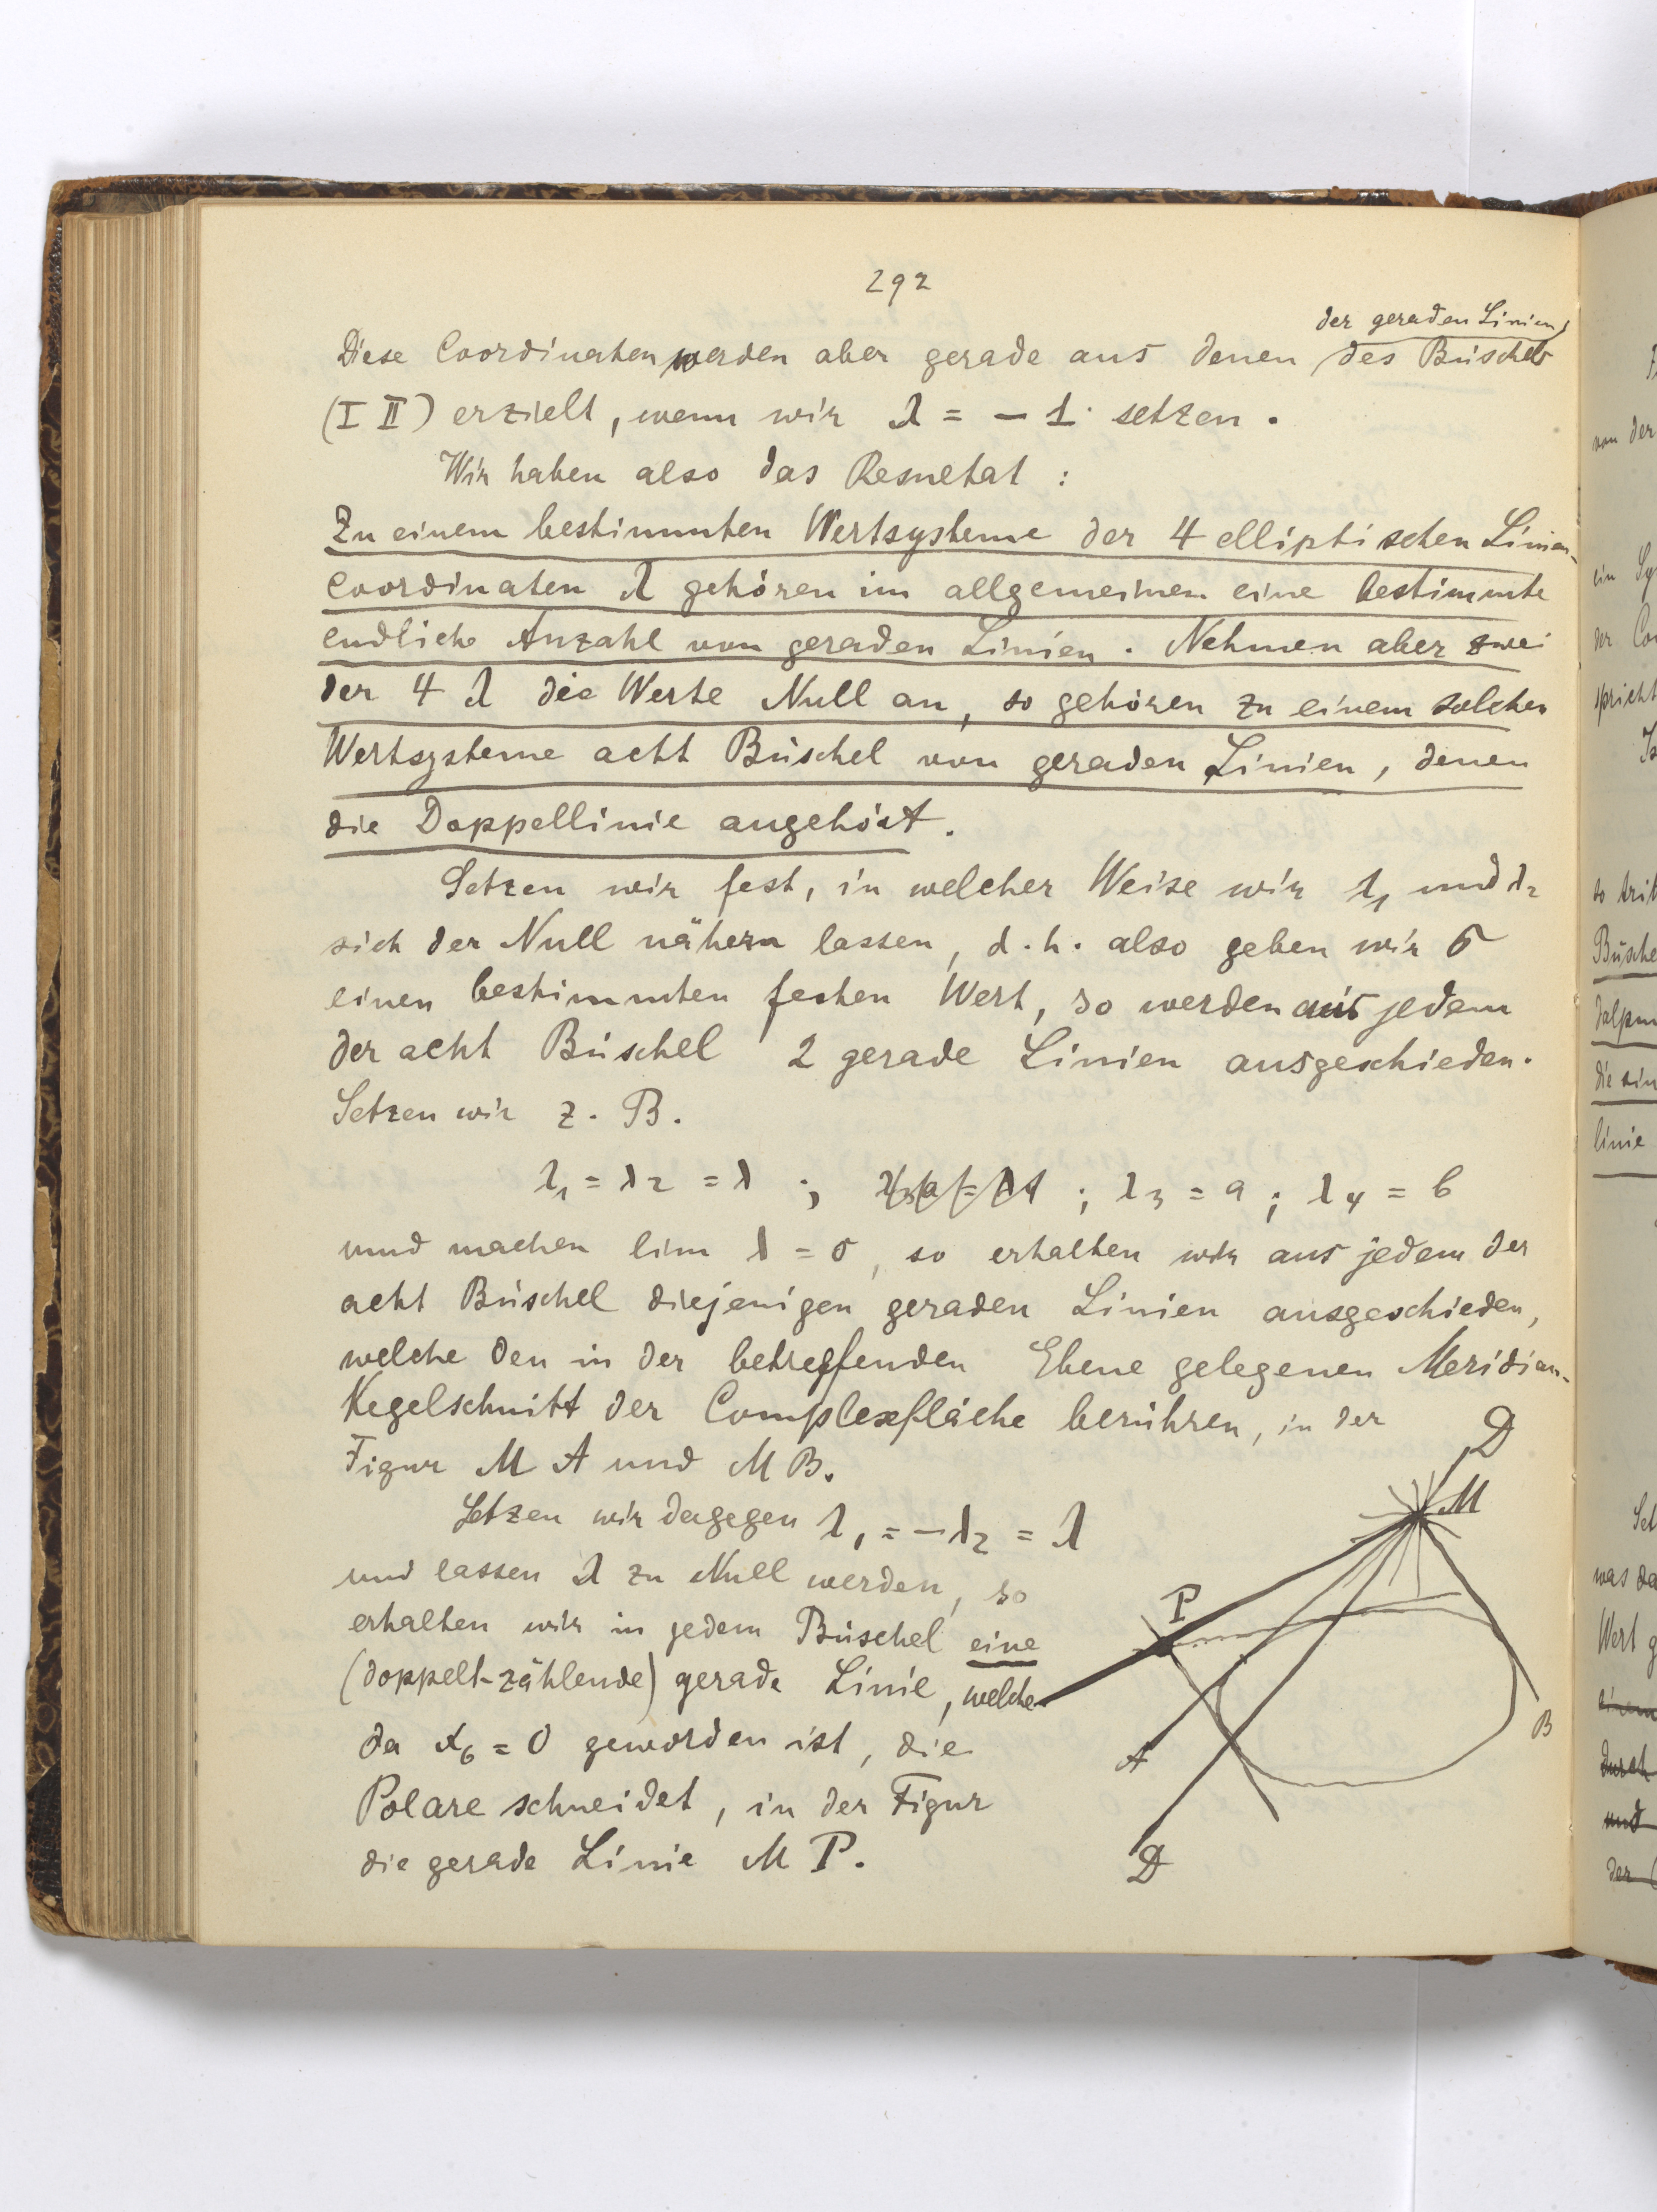 292
der geraden Linien
Diese Coordinaten werden aber gerade aus denen des Büschels
(I II) erzielt, wenn wir λ = - 1 setzen.
Wir haben also das Resultat :
Zu einem bestimmten Wertsysteme der 4 elliptischen Linien-
coordinaten λ gehören im allgemeinen eine bestimmte
endliche Anzahl von geraden Linien. Nehmen aber zwei
der 4 λ die Werte Null an, so gehören zu einem solchen
Wertsysteme acht Büschel von geraden Linien, denen
die Doppellinie angehört.
Setzen wir fest, in welcher Weise wir λ₁ und λ₂
sich der Null nähern lassen, d.h. also geben wir σ
einen bestimmten festen Wert, so werden aus jedem
der acht Büschel 2 gerade Linien ausgeschieden.
Setzen wir z. B.
λ₁ = λ₂ = λ ; ; λ₃ = a ; λ₄ = b
und machen lim λ = o, so erhalten wir aus jedem der
acht Büschel diejenigen geraden Linien ausgeschieden,
welche den in der betreffenden Ebene gelegenen Meridian-
Kegelschnitt der Complexfläche berühren, in der
Figur M A und M B.
Setzen wir dagegen λ₁ = - λ₂ = λ
und lassen λ zu Null werden, so
erhalten wir in jedem Büschel eine
(doppelt-zählende) gerade Linie, welche
da x₆ = 0 geworden ist, die
Polare schneidet, in der Figur
die gerade Linie M P.
D
M
P
A
B
D